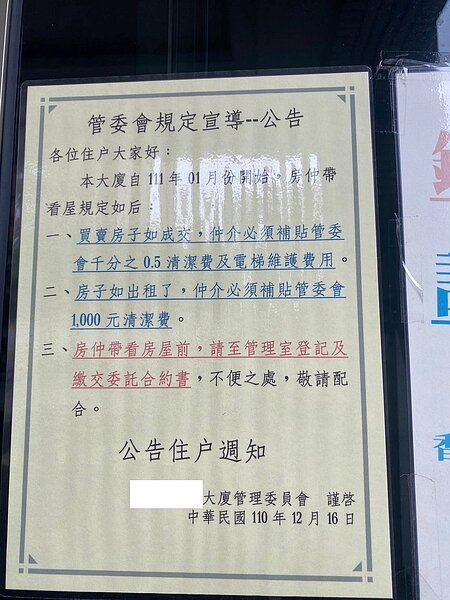 管委會規定宣導--公告
各位住户大家好：
本大廈自 111 年 01 月份開始，房仲帶
看屋規定如后：
一、買賣房子如成交，仲介必須補貼管委
會千分之 0.5 清潔費及電梯維護費用。
二、房子如出租了，仲介必須補貼管委會
1,000 元清潔費。
三、房仲帶看房屋前，請至管理室登記及
繳交委託合約書，不便之處，敬請配
合。
公告住户週知
大廈管理委員會 謹啓
中華民國 110 年 12 月 16 日